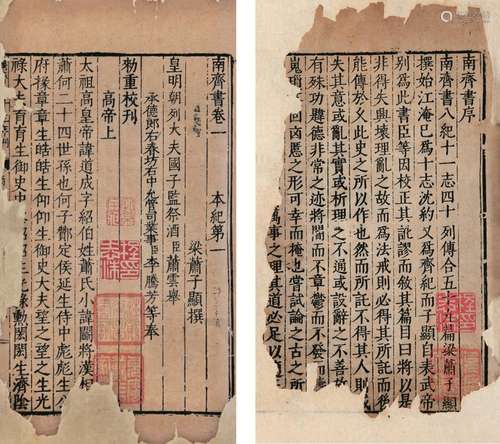 南齊書序
南齊書八紀十一志四十列傳合五十九篇梁蕭子顯
撰始江淹已為十志沈約又為齊紀而子顯自表武帝
別為此書臣等因校正其訛謬而敘其篇目曰將以
非得失興壞理亂之故而為法戒則必得其所託而
能傳於久此史之所以作也然而所託不得其人則
失其意或亂其實或析理之不通或設辭之不善
有殊功韙德非常之迹將闇而不章鬱而不發
嵬 凶慝之形可幸而掩也嘗試論之古之所
為事之理其道必足以
南齊書卷一 本紀第一
梁蕭子顯撰
皇明朝列大夫國子監祭酒臣蕭雲舉
承德郎右春坊右中允管司業事臣李騰芳等奉
勑重校刊
高帝上
太祖高皇帝諱道成字紹伯姓蕭氏小諱鬭將漢相
蕭何二十四世孫也何子酇定侯延生侍中彪彪生公
府掾章章生皓皓生仰仰生御史大夫望之望之生光
祿大 育育生御史中 紹紹 光祿勳閎閎生濟陰